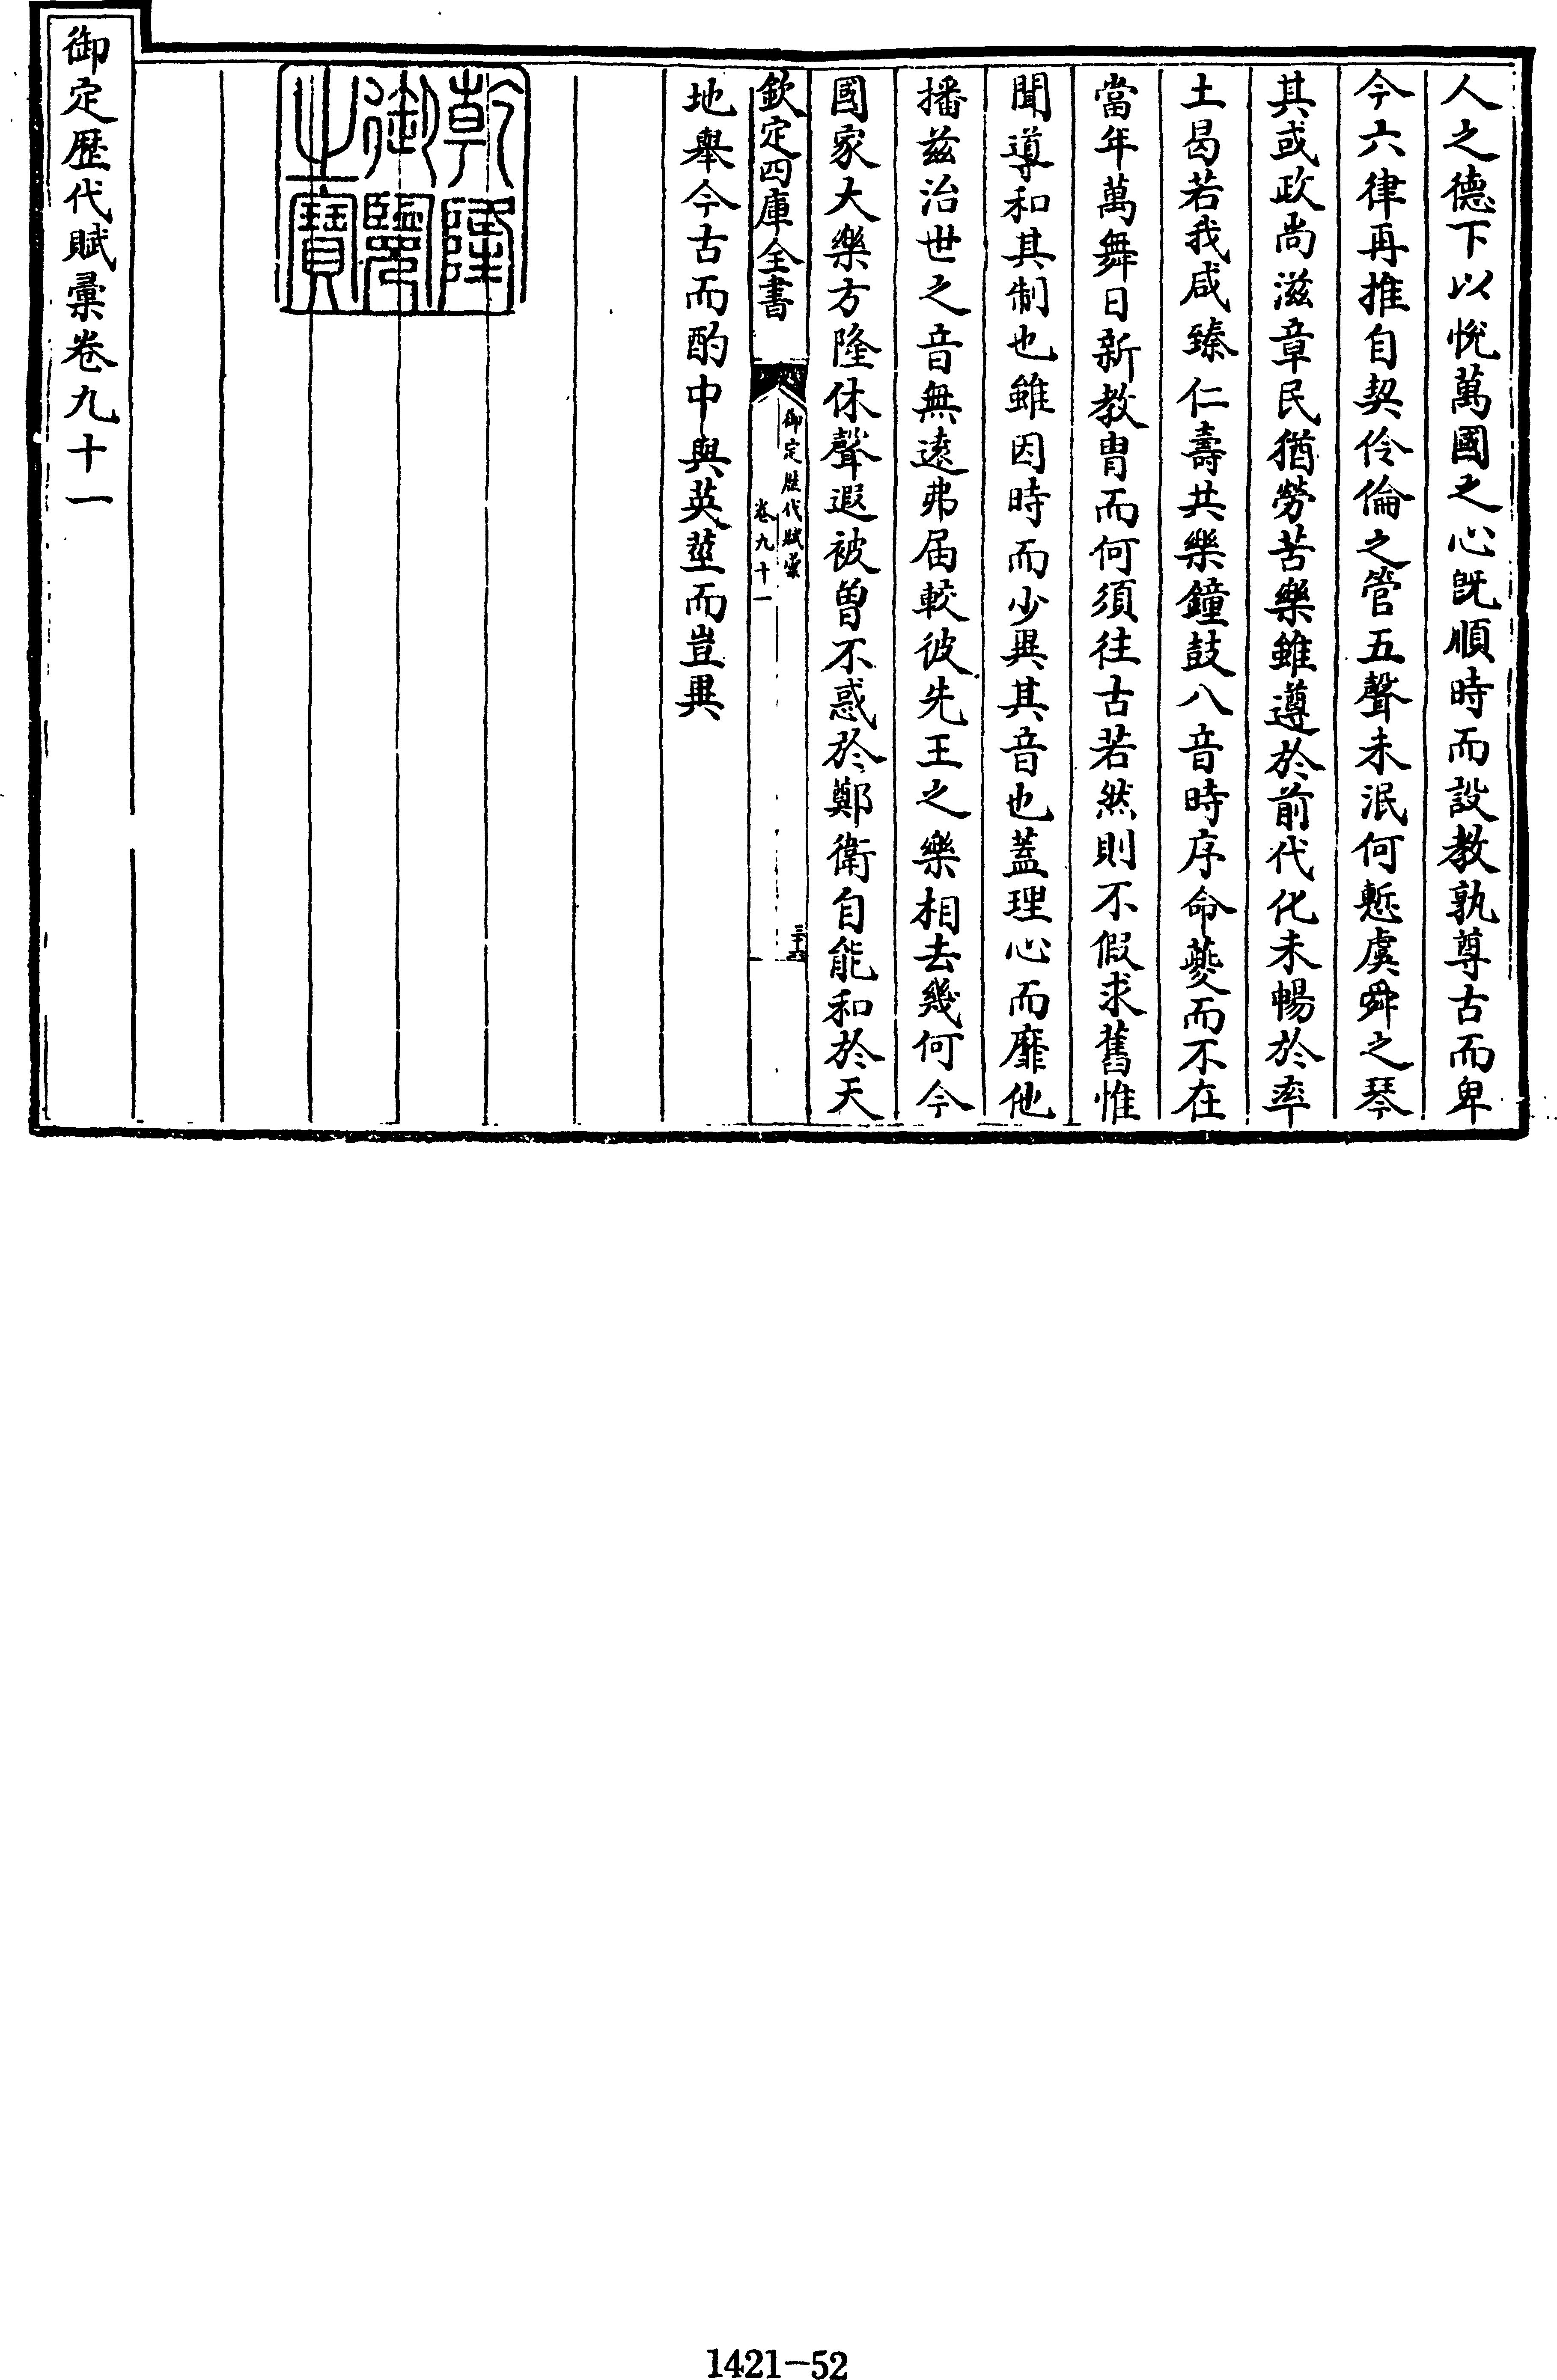 人之德下以悅萬國之心旣順時而設教孰尊古而卑
今六律再推自契伶倫之管五聲未泯何慙虞舜之琴
其或政尚滋章民猶勞苦樂雖遵於前代化未暢於率
土曷若我咸臻仁壽共樂鐘鼓八音時序命夔而不在
當年萬舞日新教胄而何須往古若然則不假求舊惟
聞導和其制也雖因時而少異其音也蓋理心而靡他
播兹治世之音無遠弗届較彼先王之樂相去幾何今
國家大樂方隆休聲遐被曾不惑於鄭衛自能和於天
欽定四庫全書
御定歴代賦彙
卷九十一
三十六
地舉今古而酌中與英莖而豈異
乾隆
御覽
之寶
御定歴代賦彙卷九十一
1421-52